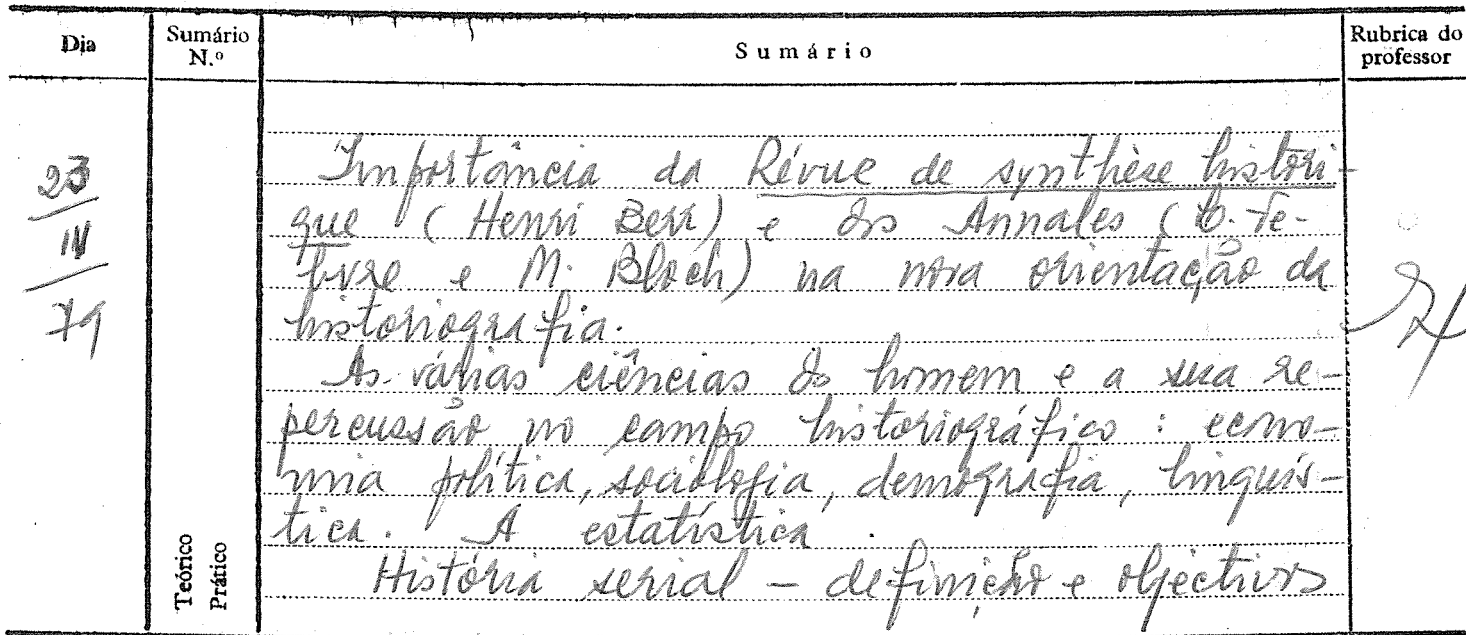 Dia
Sumário N.º
Sumário
Rubrica do professor
23
IV
79
Importância da Révue de synthèse histori-
que (Henri Berr) e dos Annales (L. Fe-
bvre e M. Bloch) na nova orientação da
historiografia.
As várias ciências do homem e a sua re-
percussão no campo historiográfico: econo-
mia política, sociologia, demografia, linguís-
tica. A estatística.
História serial – definição e objectivos
Teórico
Prático